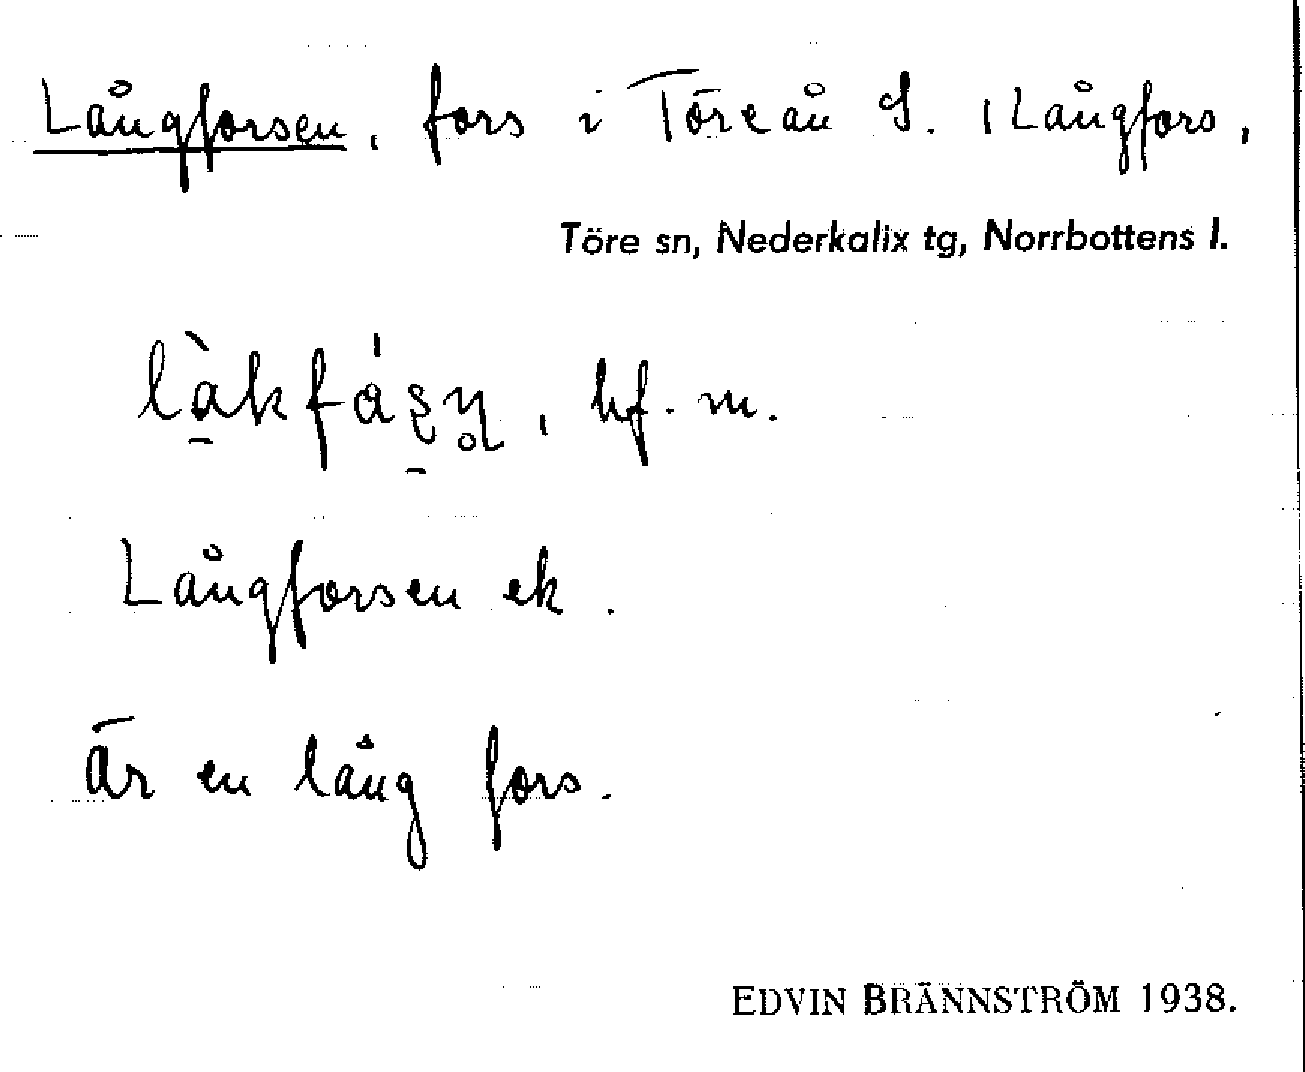 Långforsen, fors i Töreån S. i Långfors,
Töre sn, Nederkalix tg, Norrbottens l.
hf. m.
Långforsen ek.
Är en lång fors.
EDVIN BRÄNNSTRÖM 1938.